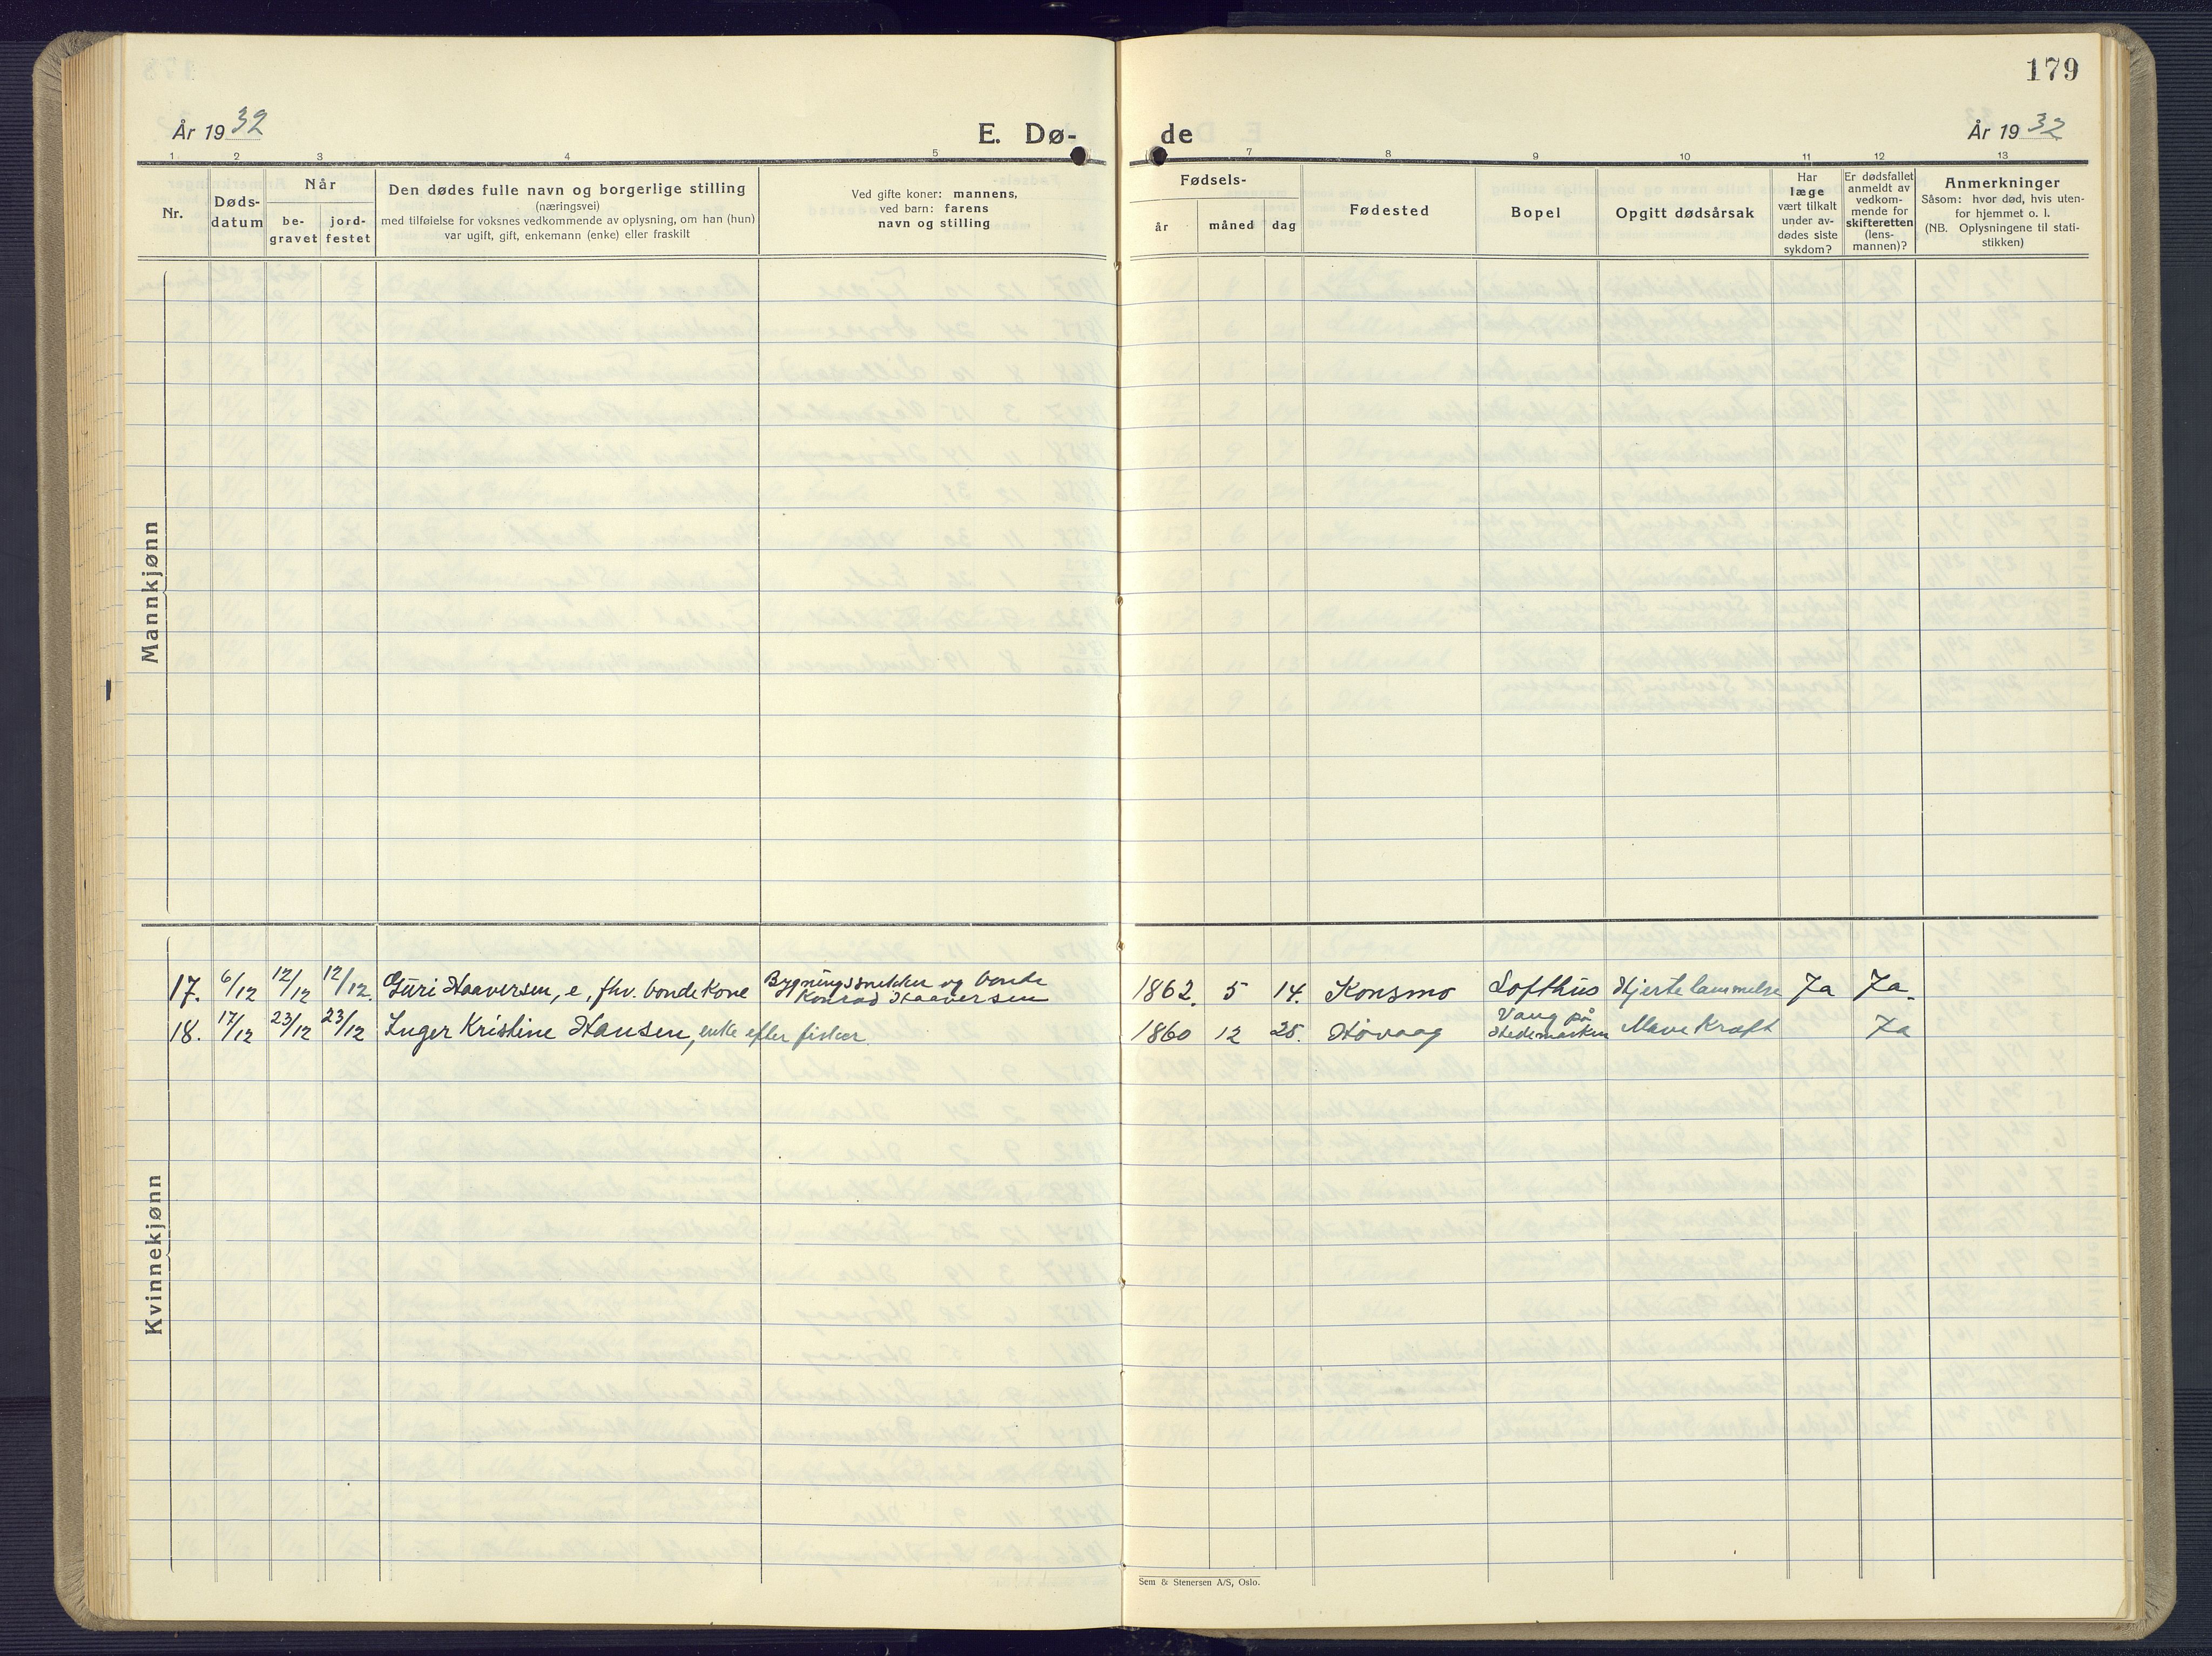 179
År 1932
E. Dø-
de
År 1932
1 2 3 4 5 7 8 9 10 11 12 13
Nr.
Døds-
datum
Når
be-
gravet
jord-
festet
Den dødes fulle navn og borgerlige stilling
(næringsvei)
med tilføielse for voksnes vedkommende av oplysning, om han (hun)
var ugift, gift, enkemann (enke) eller fraskilt
Ved gifte koner: mannens,
ved barn: farens
navn og stilling
Fødsels-
år
måned
dag
Fødested
Bopel
Opgitt dødsårsak
Har
læge
vært tilkalt
under av-
dødes siste
sykdom?
Er dødsfallet
anmeldt av
vedkom-
mende for
skifteretten
(lens-
mannen)?
Anmerkninger
Såsom: hvor død, hvis uten-
for hjemmet o. l.
(NB. Oplysningene til stati-
stikken)
Mannkjønn
Kvinnekjønn
17. 6/12 12/12 12/12. Guri Haaversen, e, fhv. bondekone
Bygningssnekker og bonde
Konrad Haaversen
1862. 5 14. Konsmo Lofthus Hjertelammelse Ja Ja.
18. 17/12 23/12 23/12 Inger Kristine Hansen, enke efter fisker
1860 12 25. Høvaag
Vang på
Hedemarken
Mave Kræft Ja
Sem & Stenersen A/S, Oslo.